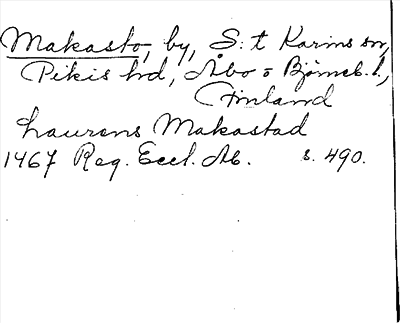 Makasto, by, S:t Karins sn,
Pikis hd, Åbo o Björneb. l.,
Finland
Laurens Makastad
1467 Reg. Eccl. Ab. s. 490.